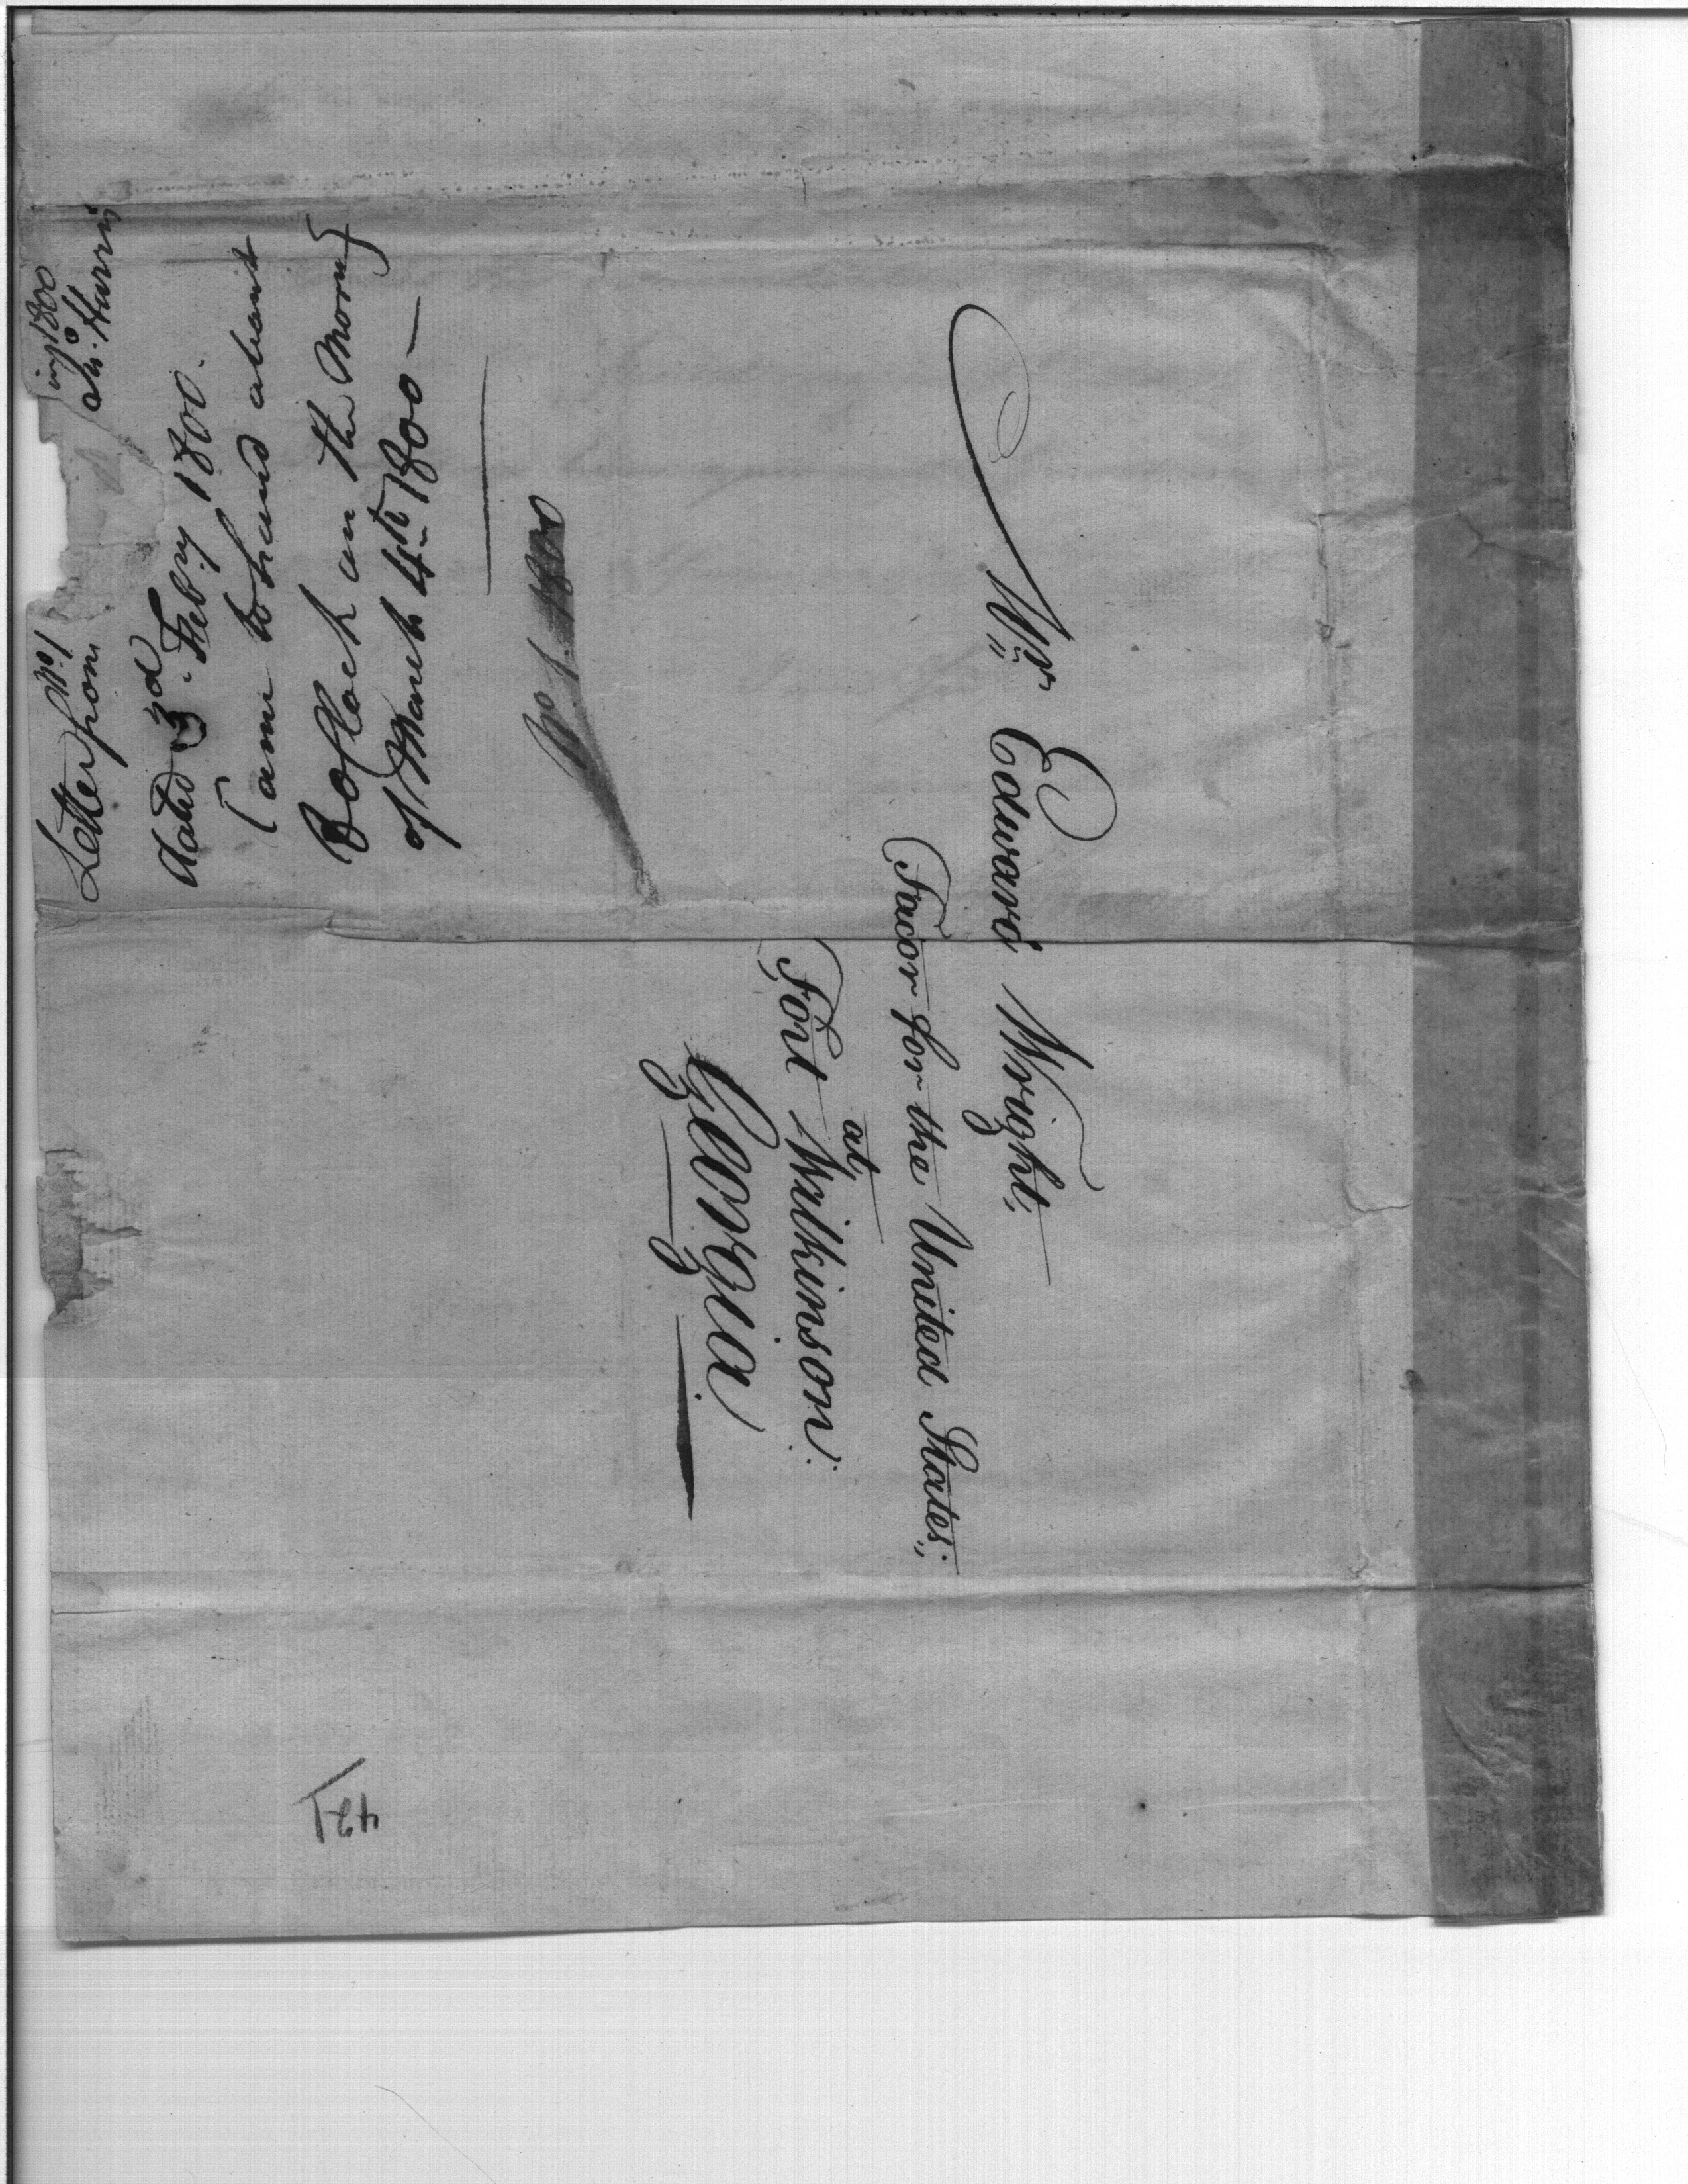 Mr Edward Wright,
Facor for the United States;
at
Fort Wilkinson:
Georgia
No. 1 1800
Jno. Harris
Letter from
dated 3d. Feby 1800.
Came to hand about
8 oClock in the Morng
of March 4th 1800 —
No 1 1800
421